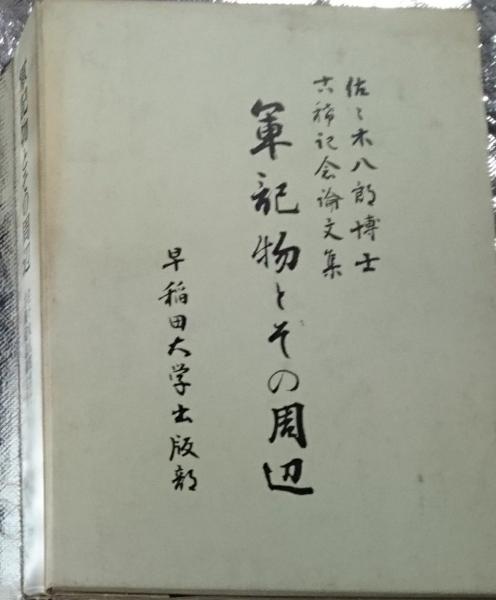 佐々木八郎博士
古稀記念論文集
軍記物とその周辺
早稲田大学出版部
軍記物とその周辺